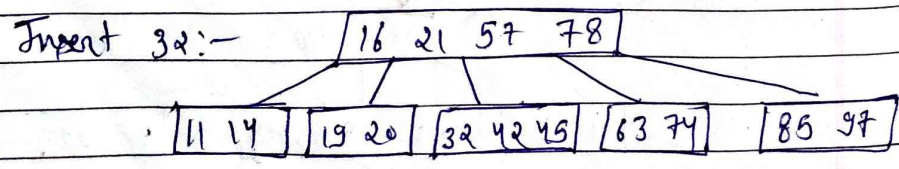 Insert 32:- 16 21 57 78
11 14 19 20 32 42 45 63 74 85 97